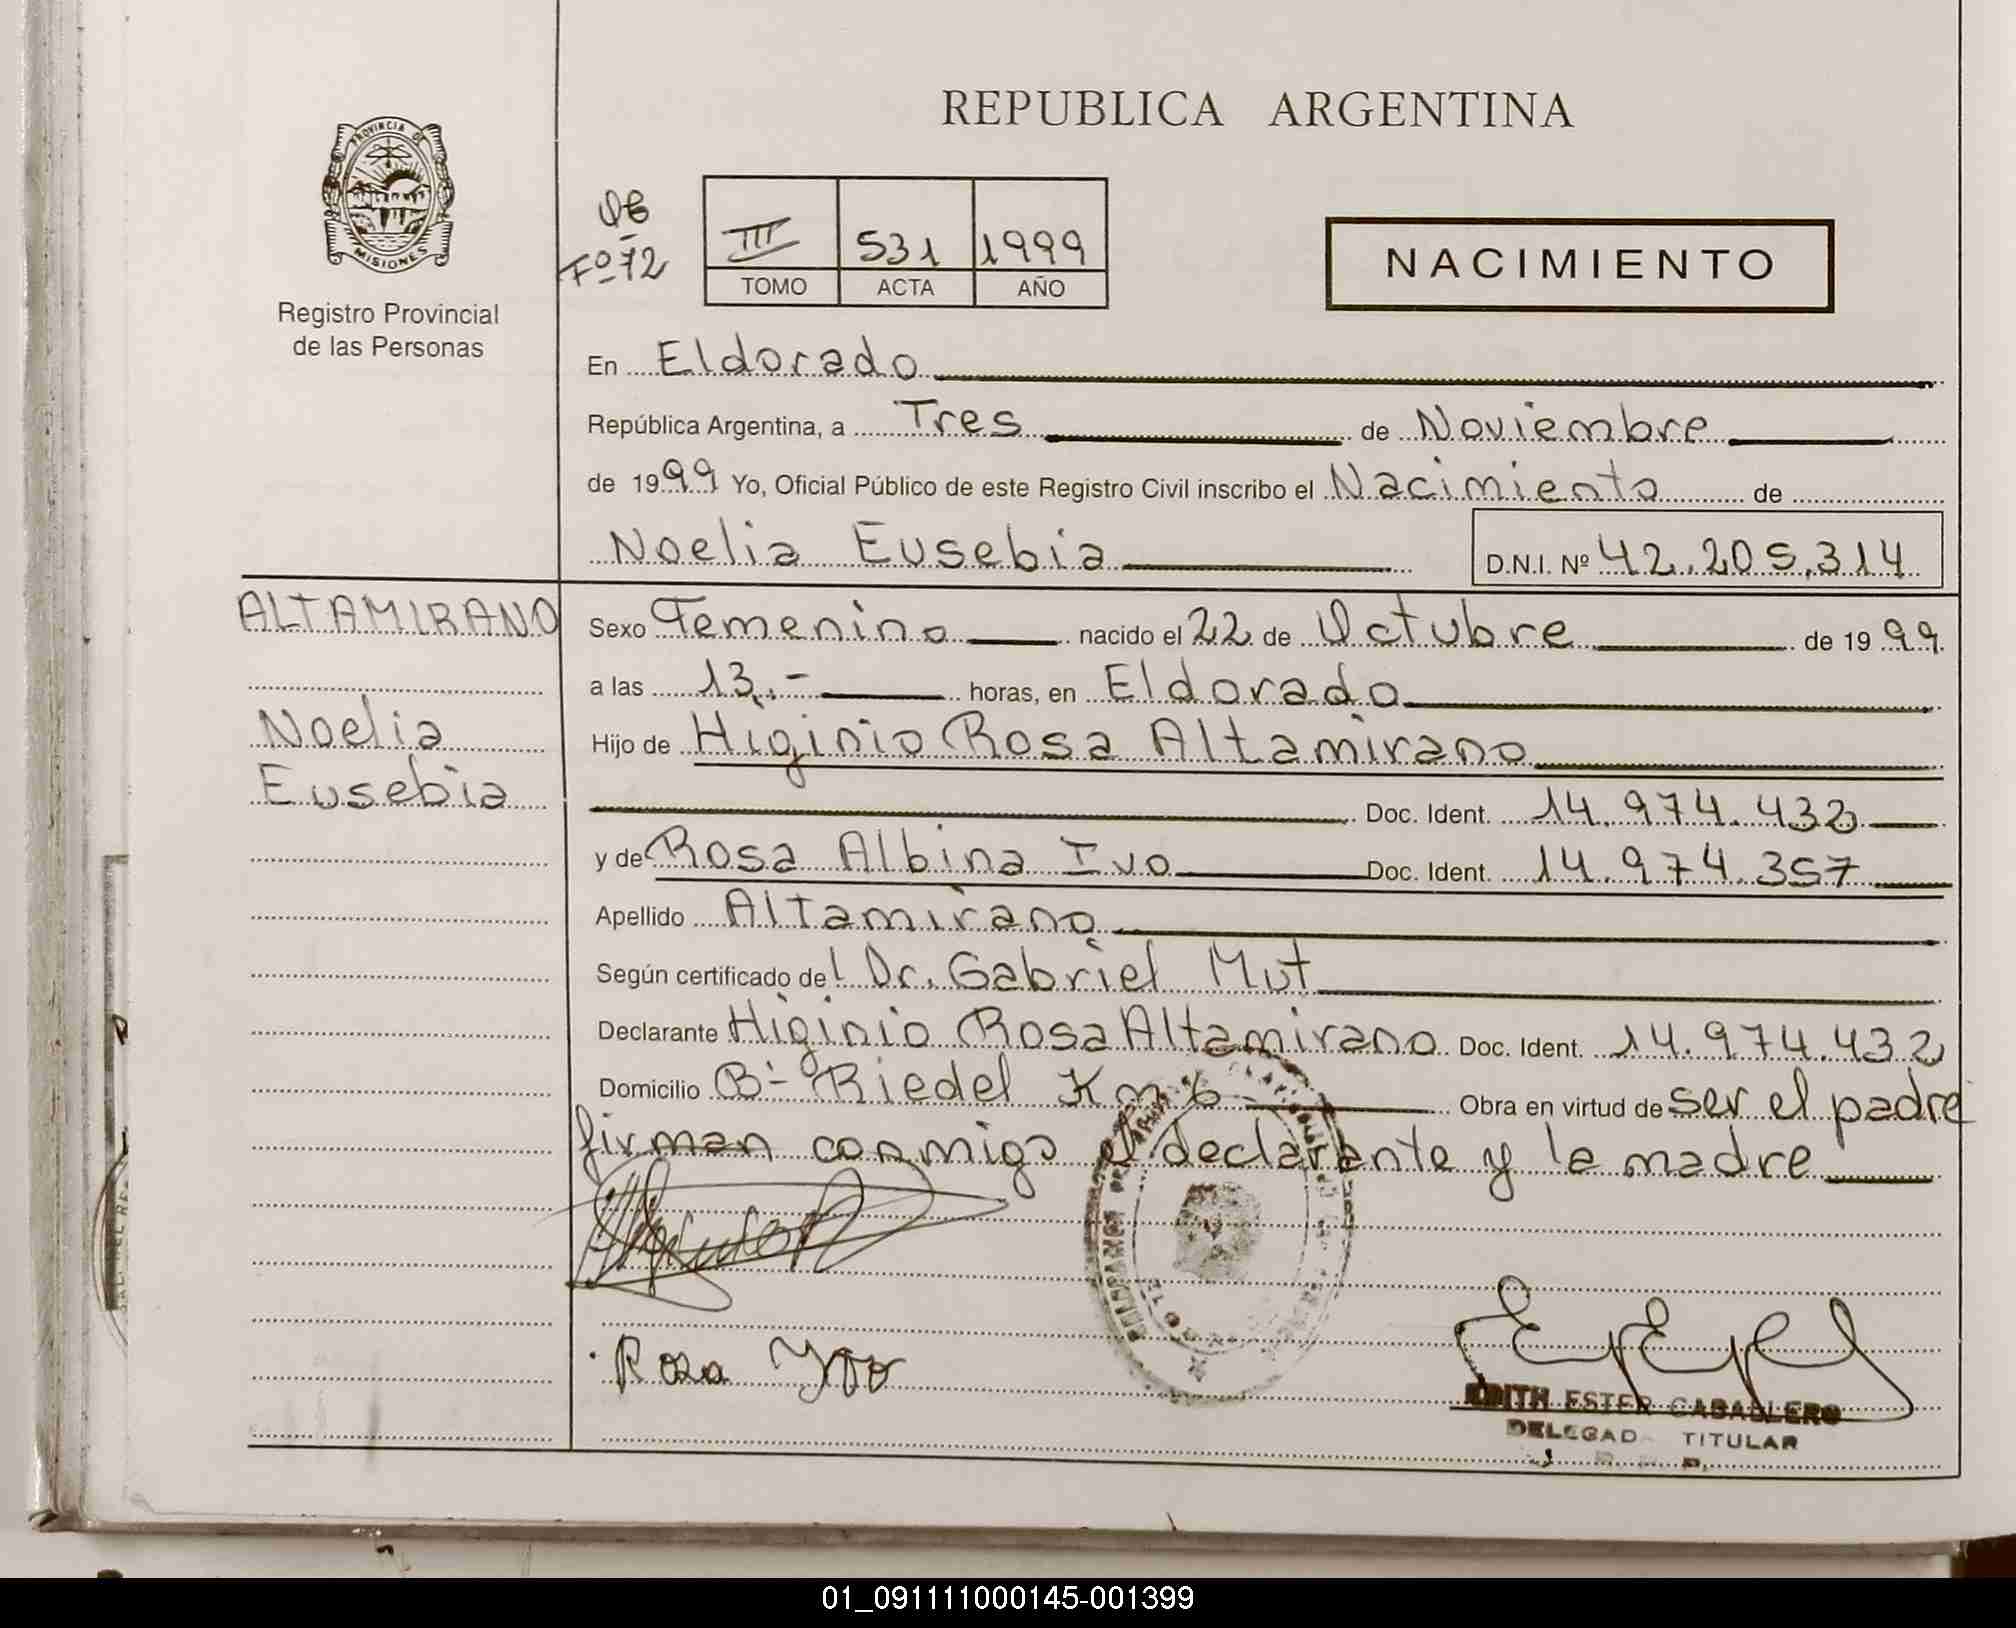 REPUBLICA ARGENTINA
PROVINCIA DE
MISIONES
Registro Provincial
de las Personas
Fº 72
III 531 1999
TOMO ACTA AÑO
NACIMIENTO
En Eldorado
República Argentina, a Tres de Noviembre
de 1999 Yo, Oficial Público de este Registro Civil inscribo el Nacimiento de
Noelia Eusebia D.N.I. Nº 42.205.314
ALTAMIRANO
Noelia
Eusebia
Sexo Femenino nacido el 22 de Octubre de 1999
a las 13.- horas, en Eldorado
Hijo de Higinio Rosa Altamirano
Doc. Ident. 14.974.432
y de Rosa Albina Ivo Doc. Ident. 14.974.357
Apellido Altamirano
Según certificado del Dr. Gabriel Mut
Declarante Higinio Rosa Altamirano Doc. Ident. 14.974.432
Domicilio Bº Riedel Km 6 Obra en virtud de ser el padre
firman conmigo el declarante y la madre
Rosa Ivo
EDITH ESTER CABALLERO
DELEGADA TITULAR
01_091111000145-001399